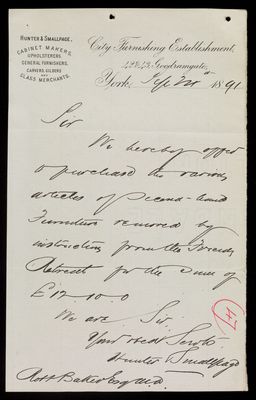 HUNTER & SMALLPAGE,
CABINET MAKERS,
UPHOLSTERERS
GENERAL FURNISHERS,
CARVERS, GILDERS
AND
GLASS MERCHANTS.
City Furnishing Establishment,
Goodramgate,
York, Sep 1891
Sir
We hereby offer
to purchase the various
articles of Second-hand
Furniture removed by
instructions from the Friends
Retreat for the Sum of
£12-10-0
We are, Sir,
Your obedt Servts
Hunter & Smallpage
Baker Esq M.D.
47